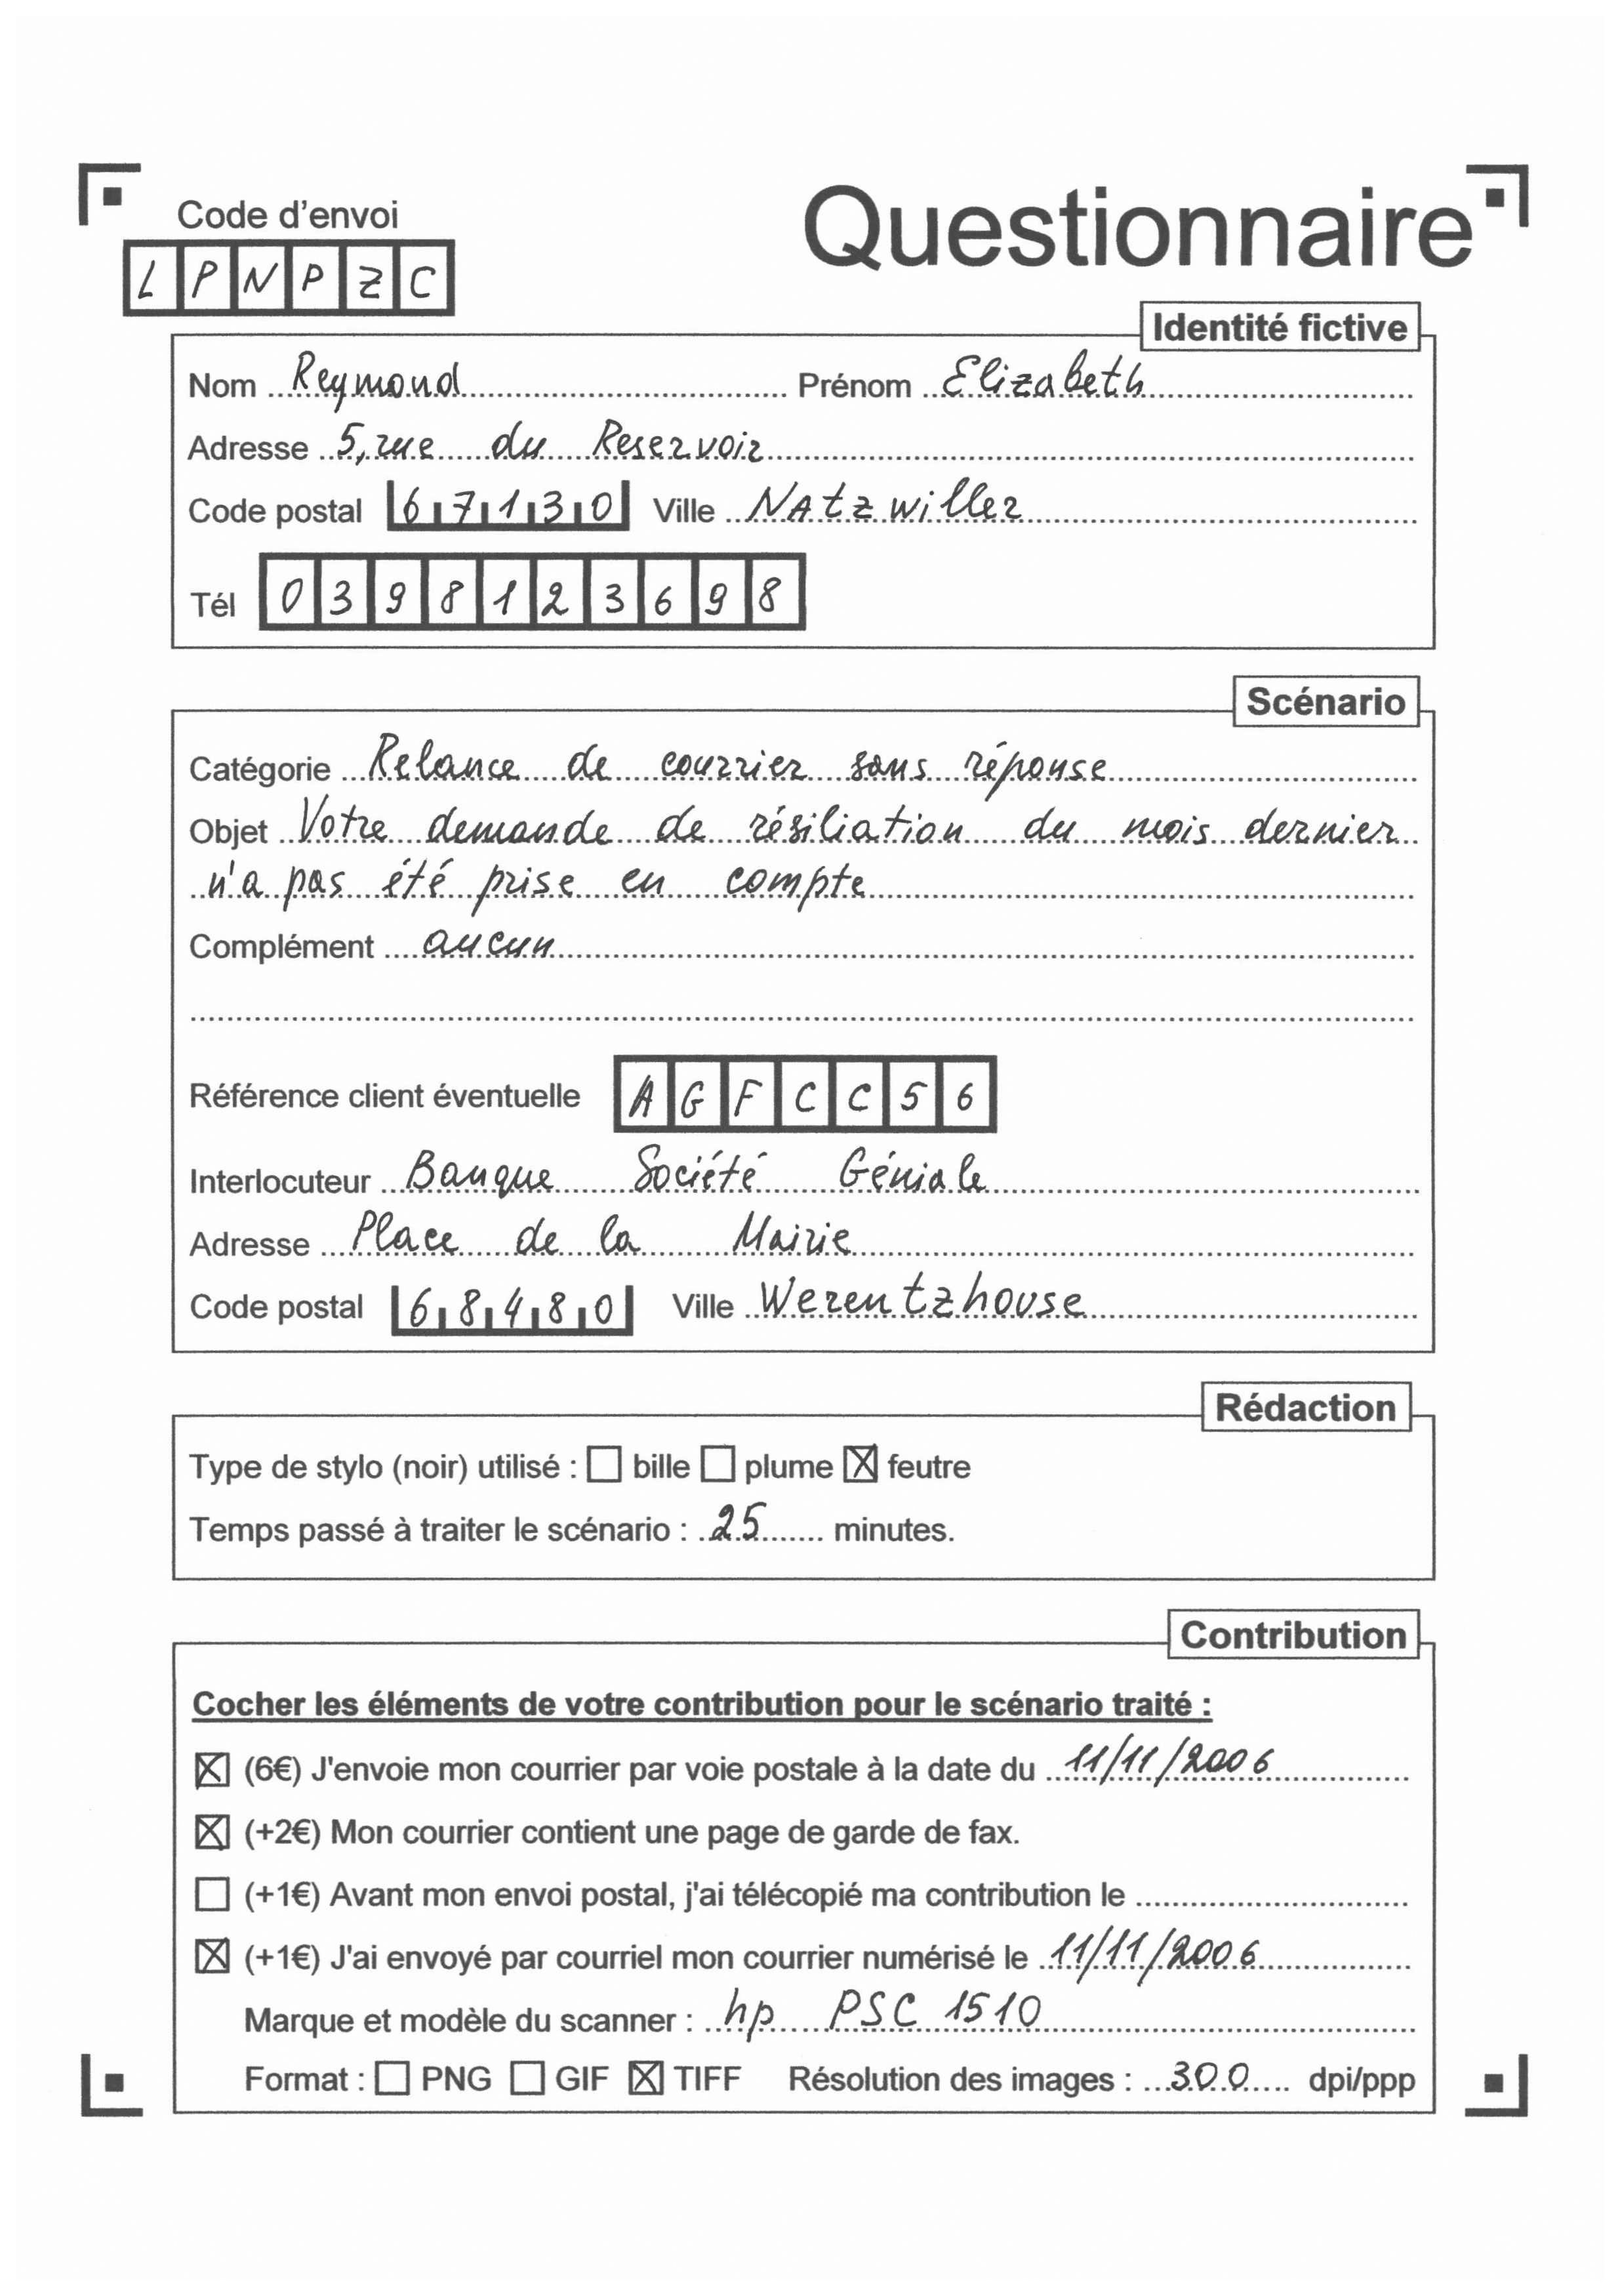 Code d'envoi
Questionnaire
L P N P Z C
Identité fictive
Nom Reymond Prénom Elizabeth
Adresse 5, rue du Reservoir
Code postal 67130 Ville NAtzwiller
Tél 0398123698
Scénario
Catégorie Relance de courrier sans réponse
Objet Votre demande de résiliation du mois dernier
n'a pas été prise en compte
Complément aucun
Référence client éventuelle AGFCC56
Interlocuteur Banque Société Géniale
Adresse Place de la Mairie
Code postal 68480 Ville Werentzhouse
Rédaction
Type de stylo (noir) utilisé : ☐ bille ☐ plume ☒ feutre
Temps passé à traiter le scénario : 25 minutes.
Contribution
Cocher les éléments de votre contribution pour le scénario traité :
☒ (6€) J'envoie mon courrier par voie postale à la date du 11/11/2006
☒ (+2€) Mon courrier contient une page de garde de fax.
☐ (+1€) Avant mon envoi postal, j'ai télécopié ma contribution le
☒ (+1€) J'ai envoyé par courriel mon courrier numérisé le 11/11/2006
Marque et modèle du scanner : hp PSC 1510
Format : ☐ PNG ☐ GIF ☒ TIFF Résolution des images : 300 dpi/ppp